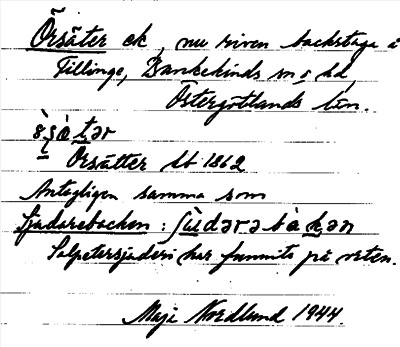 Örsäter ek, nu riven backstuga i
Tillinge, Bankekinds sn o hd,
Östergötlands län.
Örsätter lt 1862
Antagligen samma som
Sjudarebacken : ʃùdərəbàkən
Salpetersjuderi har funnits på vreten.
Maja Nordlund 1944.